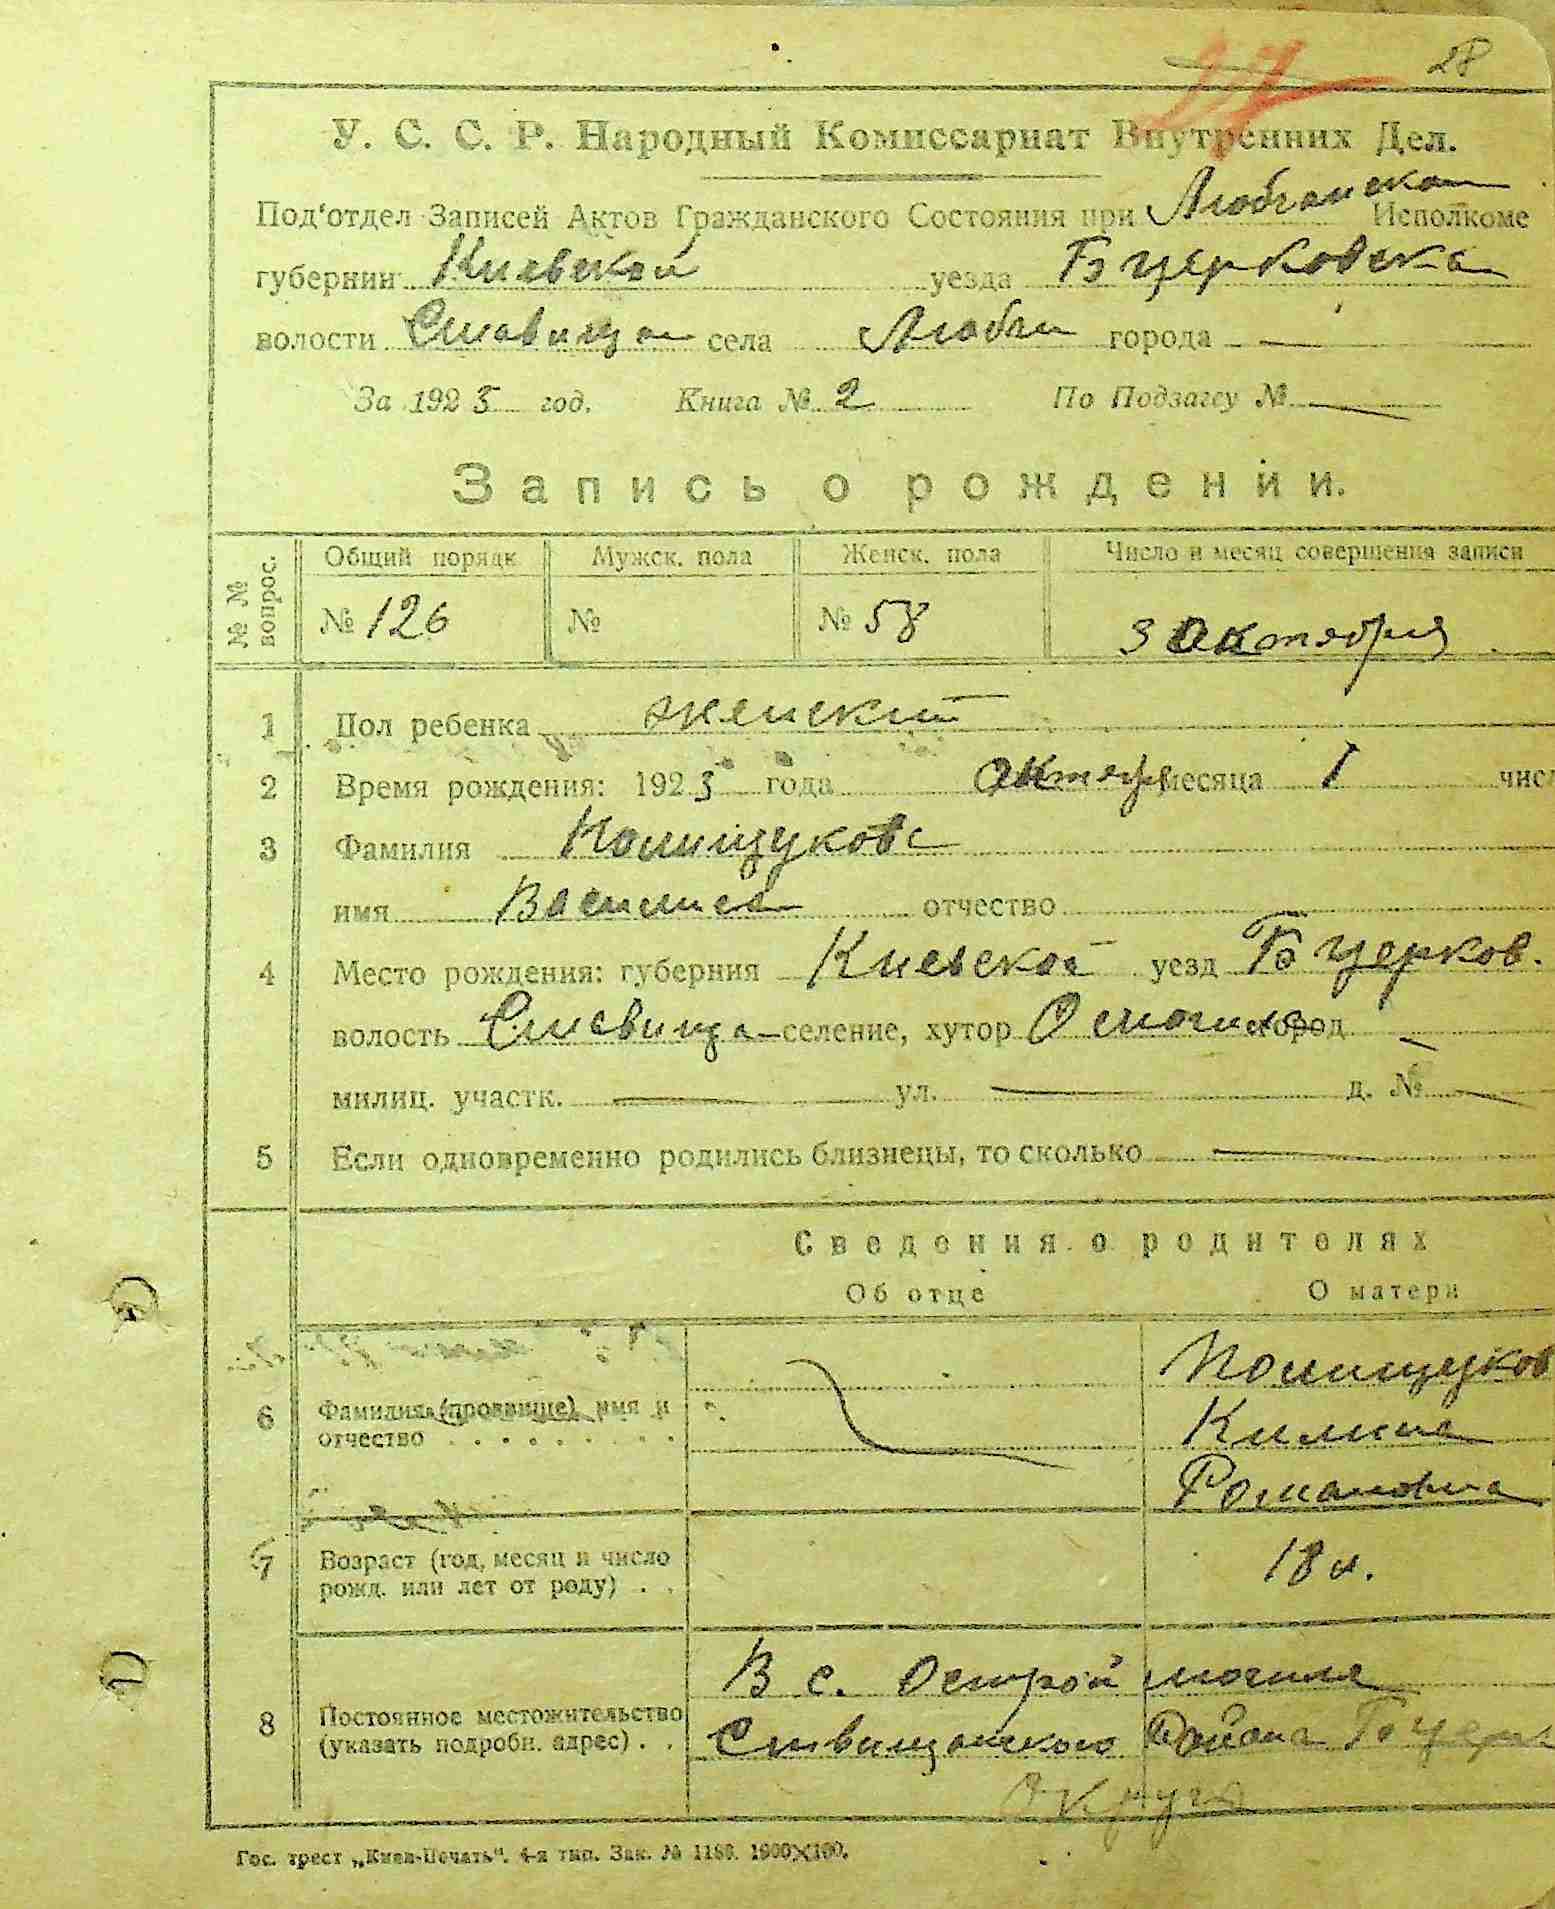 28
27
У. С. С. Р. Народный Комиссариат Внутренних Дел.
Под‘отдел Записей Актов Гражданского Состояния при Исполкоме
губернии Киевской уезда Б церковска
волости Ставища села города —
За 1923 год. Книга № 2 По Подзагсу № —
Запись о рождении.
№ № вопрос. Общий порядк Мужск. пола Женск. пола Число и месяц совершения записи
№ 126 № № 58 3 октября
1 Пол ребенка женский
2 Время рождения: 1923 года октяр месяца 1 числ
3 Фамилия Полищукова
имя Василиса отчество
4 Место рождения: губерния Киевской уезд Б церков.
волость Ставища селение, хутор город —
милиц. участк. — ул. — д. № —
5 Если одновременно родились близнецы, то сколько —
Сведения о родителях
Об отце О матери
Полищуков
6 Фамилия (прозвище) имя и
отчество . . . . . . . . .
Романовна
7 Возраст (год, месяц и число
рожд. или лет от роду) . .
18 л.
В с. Острой могиле
8 Постоянное местожительство
(указать подробн. адрес) . .
Ставищанского Района Б церк
Округа
Гос. трест „Киев-Печать“. 4-я тип. Зак. № 1160. 1000×100.